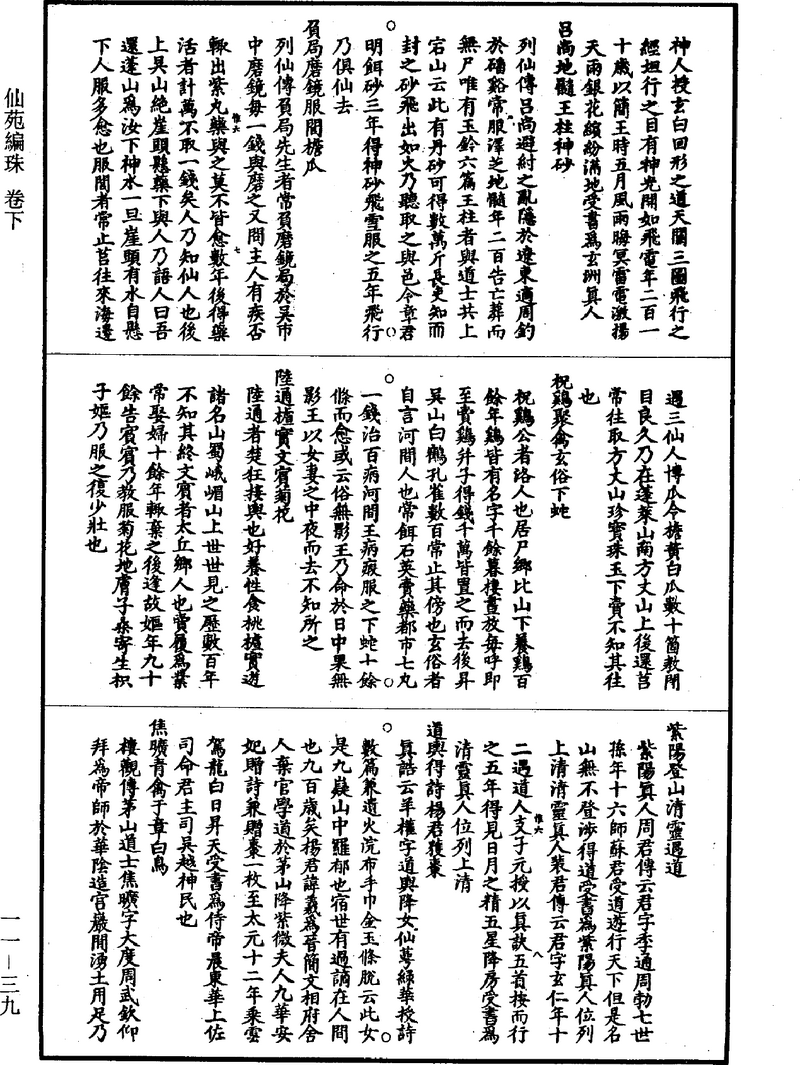 仙苑編珠 卷下
神人授玄白回形之道天關三圖飛行之
經挋行之目有神光開如飛電年二百一
十歲以簡王時五月風雨晦冥雷電激揚
天雨銀花繽紛滿地受書爲玄洲眞人
呂尚地髓王柱神砂
列仙傳呂尚避紂之亂隱於遼東適周釣
於磻谿常服澤芝地髓年二百告亡葬而
無尸唯有玉鈐六篇王柱者與道士共上
宕山云此有丹砂可得數萬斤長吏知而
封之砂飛出如火乃聽取之與邑令章君
明餌砂三年得神砂飛雪服之五年飛行
乃俱仙去
負局磨鏡服閭擔瓜
列仙傳負局先生者常負磨鏡局於吳市
中磨鏡每一錢與磨之又問主人有疾否
輒出紫丸藥與之莫不皆愈數年後得藥
活者計萬不取一錢矣人乃知仙人也後
上吳山絶崖頭懸藥下與人乃語人曰吾
還蓬山爲汝下神水一旦崖頭有水自懸
下人服多愈也服閭者常止莒往來海邊
過三仙人博瓜令擔黃白瓜數十箇教閉
目良久乃在蓬萊山南方丈山上後還莒
常往取方丈山珍寶珠玉下賣不知其往
也
祝鷄聚禽玄俗下蛇
祝鷄公者洛人也居尸鄉比山下養鷄百
餘年鷄皆有名字千餘暮棲晝放每呼即
至賣鷄幷子得錢千萬皆置之而去後昇
吳山白鶴孔雀數百常止其傍也玄俗者
自言河間人也常餌石英賣藥都市七丸
一錢治百病河間王病瘕服之下蛇十餘
條而愈或云俗無影王乃命於日中果無
影王以女妻之中夜而去不知所之
陸通櫨實文賓菊花
陸通者楚狂接輿也好養性食桃櫨實遊
諸名山蜀峨嵋山上世世見之歷數百年
不知其終文賓者太丘鄉人也賣履爲業
常娶婦十餘年輒棄之後逢故嫗年九十
餘告賓賓乃教服菊花地膚子桑寄生枳
子嫗乃服之復少壯也
紫陽登山清靈遇道
紫陽眞人周君傳云君字季通周勃七世
孫年十六師蘇君受道遊行天下但是名
山無不登涉得道受書爲紫陽眞人位列
上清清靈眞人裴君傳云君字玄仁年十
二遇道人支子元授以眞訣五首按而行
之五年得見日月之精五星降房受書爲
清靈眞人位列上清
道輿得詩楊君獲棗
眞誥云羊權字道輿降女仙萼綠華授詩
數篇兼遺火浣布手巾金玉條脫云此女
是九嶷山中羅郁也宿世有過謫在人間
也九百歲矣楊君諱羲爲晉簡文相府舍
人棄官學道於茅山降紫微夫人九華安
妃贈詩兼贈棗一枚至太元十二年乘雲
駕龍白日昇天受書爲侍帝晨東華上佐
司命君主司吳越神民也
焦曠青禽于章白鳥
樓觀傳茅山道士焦曠字大度周武欽仰
拜爲帝師於華陰造宮巖閒湧土用足乃
一一—三九